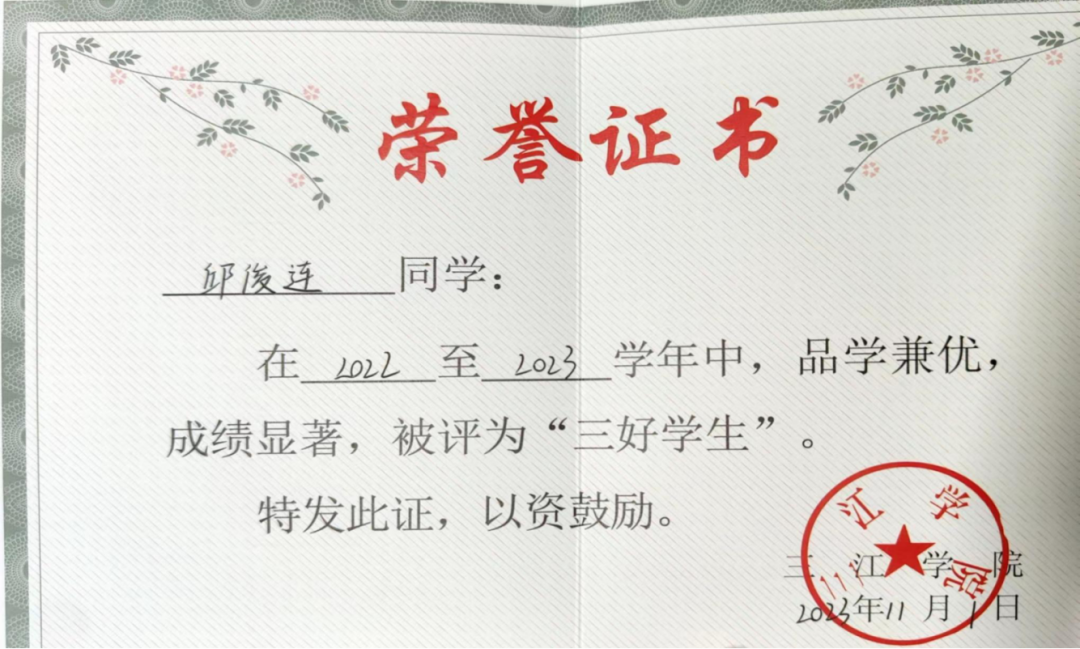 荣誉证书
邱俊连同学：
在2022至2023学年中，品学兼优，
成绩显著，被评为“三好学生”。
特发此证，以资鼓励。
三江学院
2023年11月1日
三江学院